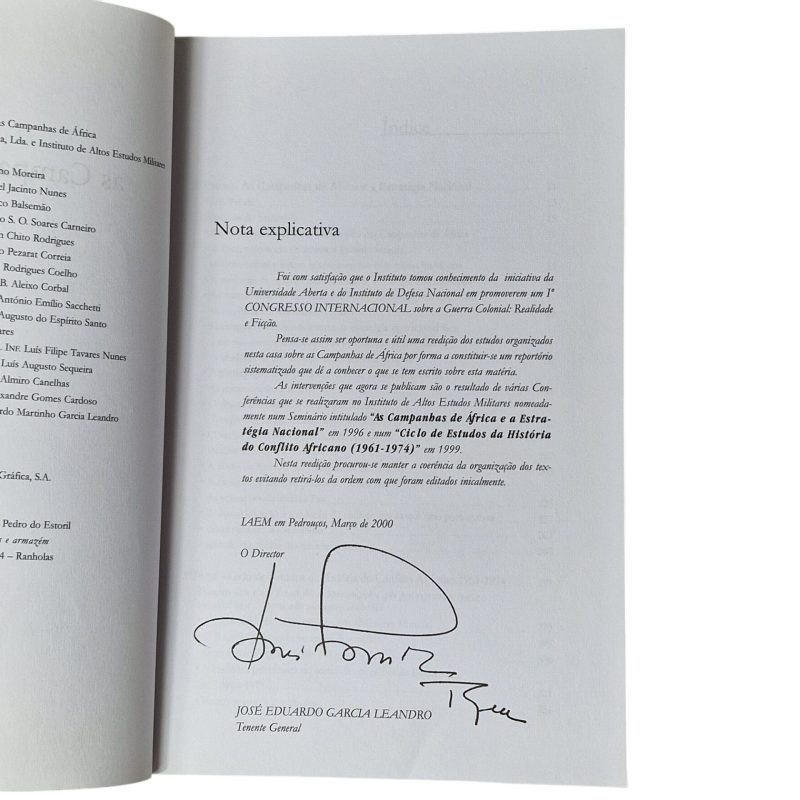 s Campanhas de África
a, Lda. e Instituto de Altos Estudos Militares
no Moreira
el Jacinto Nunes
co Balsemão
o S. O. Soares Carneiro
n Chito Rodrigues
o Pezarat Correia
Rodrigues Coelho
B. Aleixo Corbal
António Emílio Sacchetti
Augusto do Espírito Santo
ares
. INF. Luís Filipe Tavares Nunes
Luís Augusto Sequeira
Almiro Canelhas
exandre Gomes Cardoso
rdo Martinho Garcia Leandro
Gráfica, S.A.
Pedro do Estoril
s e armazém
4 – Ranholas
Nota explicativa
Foi com satisfação que o Instituto tomou conhecimento da iniciativa da
Universidade Aberta e do Instituto de Defesa Nacional em promoverem um 1º
CONGRESSO INTERNACIONAL sobre a Guerra Colonial: Realidade
e Ficção.
Pensa-se assim ser oportuna e útil uma reedição dos estudos organizados
nesta casa sobre as Campanhas de África por forma a constituir-se um reportório
sistematizado que dê a conhecer o que se tem escrito sobre esta matéria.
As intervenções que agora se publicam são o resultado de várias Con-
ferências que se realizaram no Instituto de Altos Estudos Militares nomeada-
mente num Seminário intitulado "As Campanhas de África e a Estra-
tégia Nacional" em 1996 e num "Ciclo de Estudos da História
do Conflito Africano (1961-1974)" em 1999.
Nesta reedição procurou-se manter a coerência da organização dos tex-
tos evitando retirá-los da ordem com que foram editados inicalmente.
IAEM em Pedrouços, Março de 2000
O Director
JOSÉ EDUARDO GARCIA LEANDRO
Tenente General